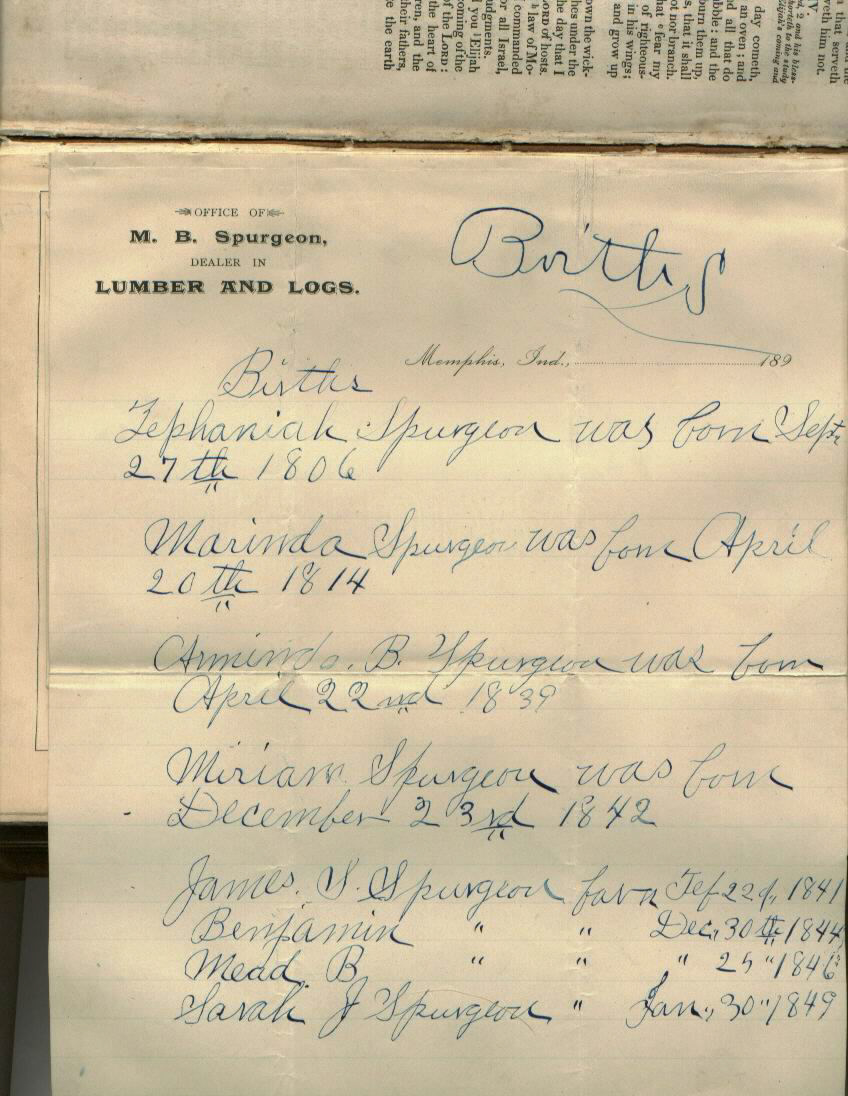 and the
n that serveth
veth him not.
IV
2 and his bless-
horteth to the study
Elijah's coming and
day cometh,
an oven; and
d all that do
bble: and the
burn them up,
s, that it shall
ot nor branch.
that fear my
of righteous-
in his wings;
and grow up
own the wick-
hes under the
he day that I
ORD of hosts.
e law of Mo-
commanded
or all Israel,
udgments.
l you Elijah
coming of the
of the LORD:
the heart of
ren, and the
heir fathers,
e the earth
OFFICE OF
M. B. Spurgeon,
DEALER IN
LUMBER AND LOGS.
Births
Memphis, Ind., 189
Births
Zephaniah Spurgeon was born Sept.
27th 1806
Marinda Spurgeon was born April
20th 1814
Arminda. B. Spurgeon was born
April 22nd 1839
Miriam Spurgeon was born
December 23rd 1842
James. S. Spurgeon born Feb 22d, 1841
Benjamin " " Dec, 30th 1844
Mead. B " " " 25 " 1846
Sarah J Spurgeon " Jan., 30 " 1849